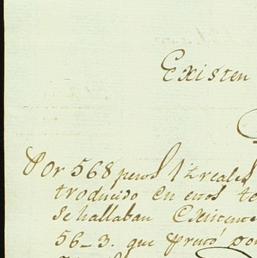 Existen
Por 568 pesos 1½ reales
troducido en estos te
se hallaban Existente
56_3. que prestó por